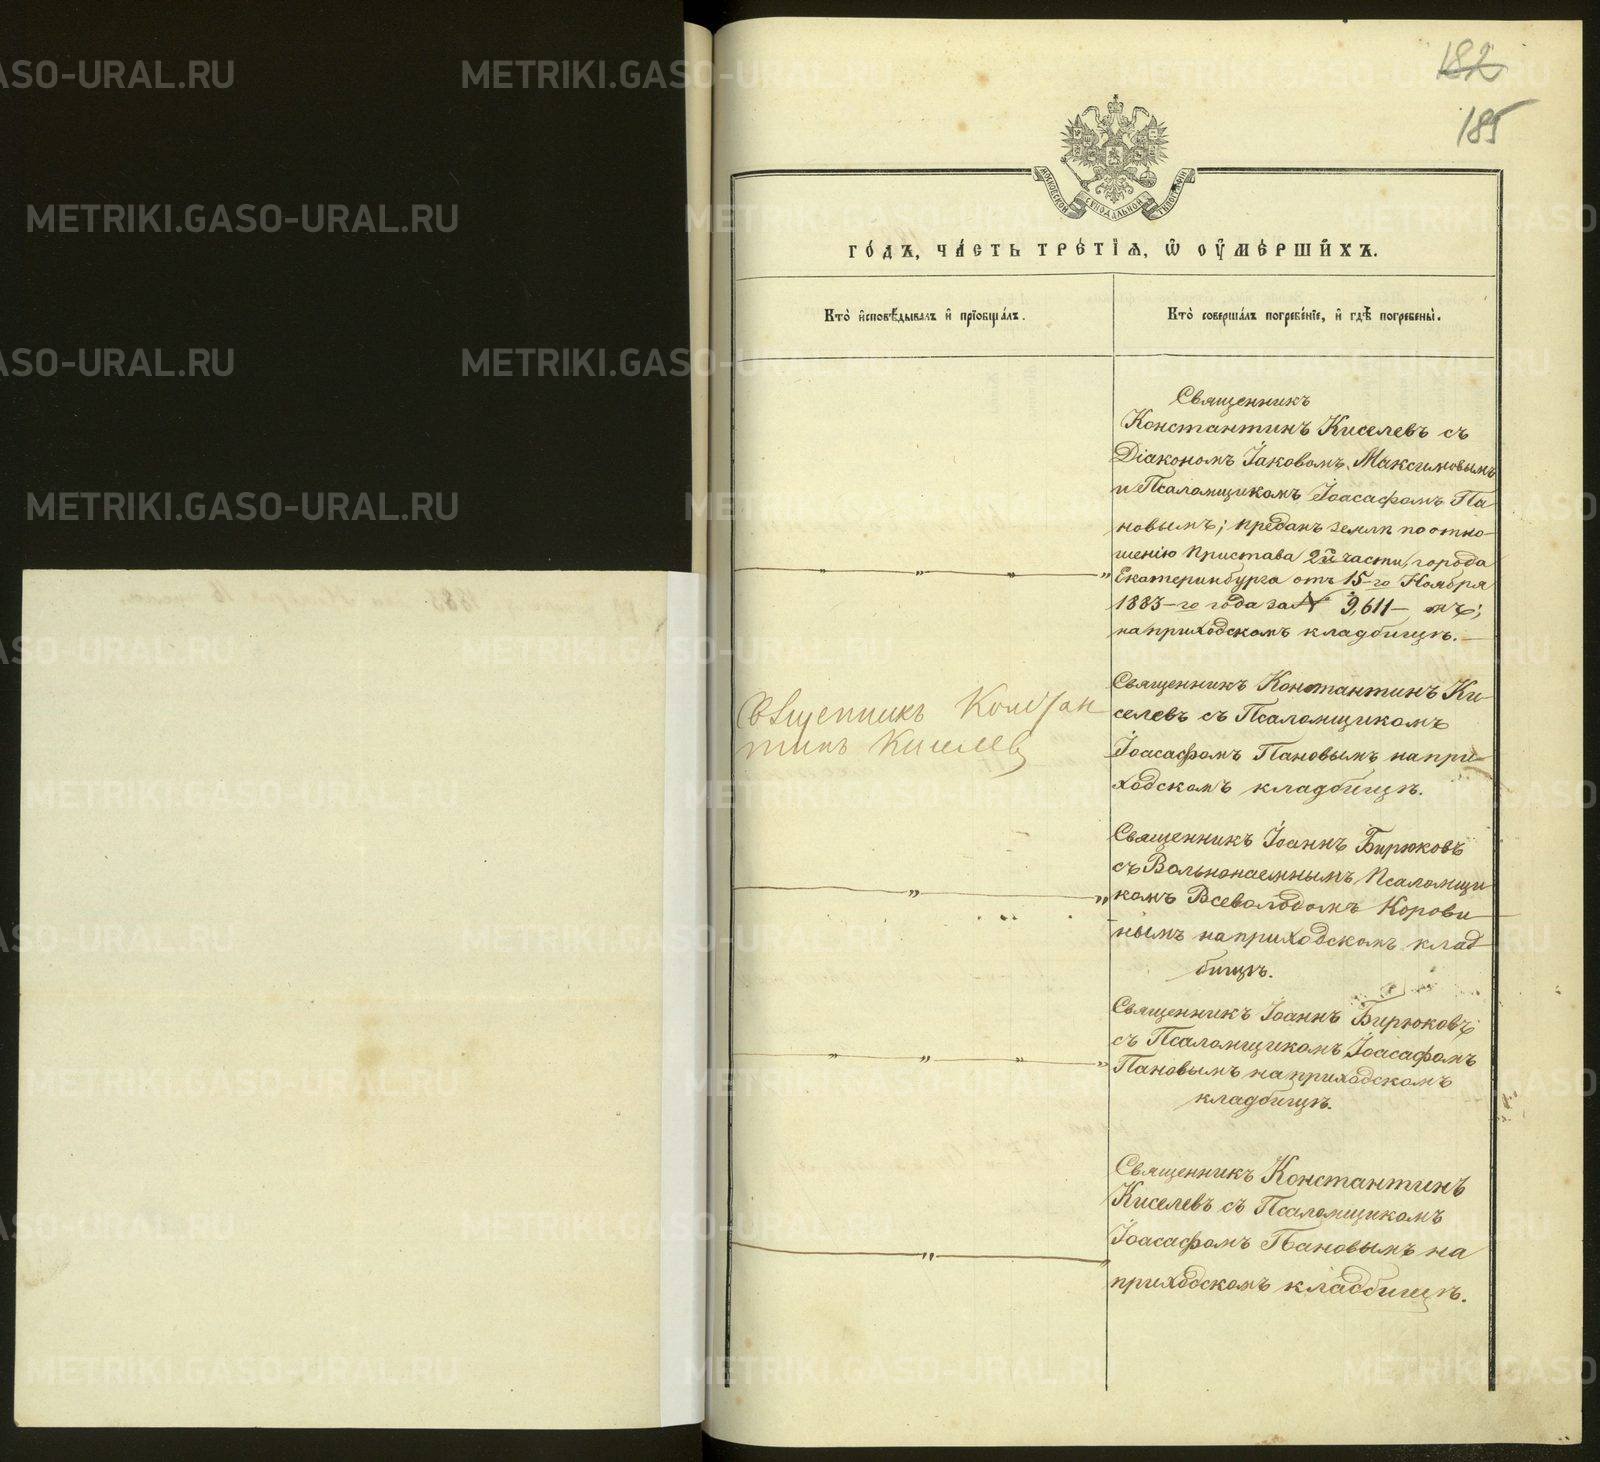 182
185
МОСКОВСКОЙ СѴНОДАЛЬНОЙ ТИПОГРАФІИ
ГО́ДЪ, ЧА́СТЬ ТРЕ́ТІѦ, Ѡ҆ ОУ҆МЕ́РШИХЪ.
Кто̀ и҆сповѣ́дывалъ и҆ прїѡбща́лъ.
Кто̀ соверша́лъ погребе́нїе, и҆ гдѣ̀ погребены̀.
Священникъ
Константинъ Киселевъ съ
Діакономъ Іаковомъ Максимовымъ
и Псаломщикомъ Іоасафомъ Па-
новымъ; преданъ землѣ по отно-
шенію Пристава 2й части города
Екатеринбурга отъ 15-го Ноября
1883-го года за № 9,611-мъ;
на приходскомъ кладбищѣ.
Священникъ Констан
тинъ Киселев
Священникъ Константинъ Ки-
селевъ съ Псаломщикомъ
Іоасафомъ Пановымъ на при-
ходскомъ кладбищѣ.
Священникъ Іоаннъ Бирюковъ
съ Вольнонаемнымъ Псаломщи
комъ Всеволодомъ Корови-
нымъ на приходскомъ клад
бищѣ.
Священникъ Іоаннъ Бирюковъ
съ Псаломщикомъ Іоасафомъ
Пановымъ на приходскомъ
кладбищѣ.
Священникъ Константинъ
Киселевъ съ Псаломщикомъ
Іоасафомъ Пановымъ на
приходскомъ кладбищѣ.
METRIKI.GASO-URAL.RU